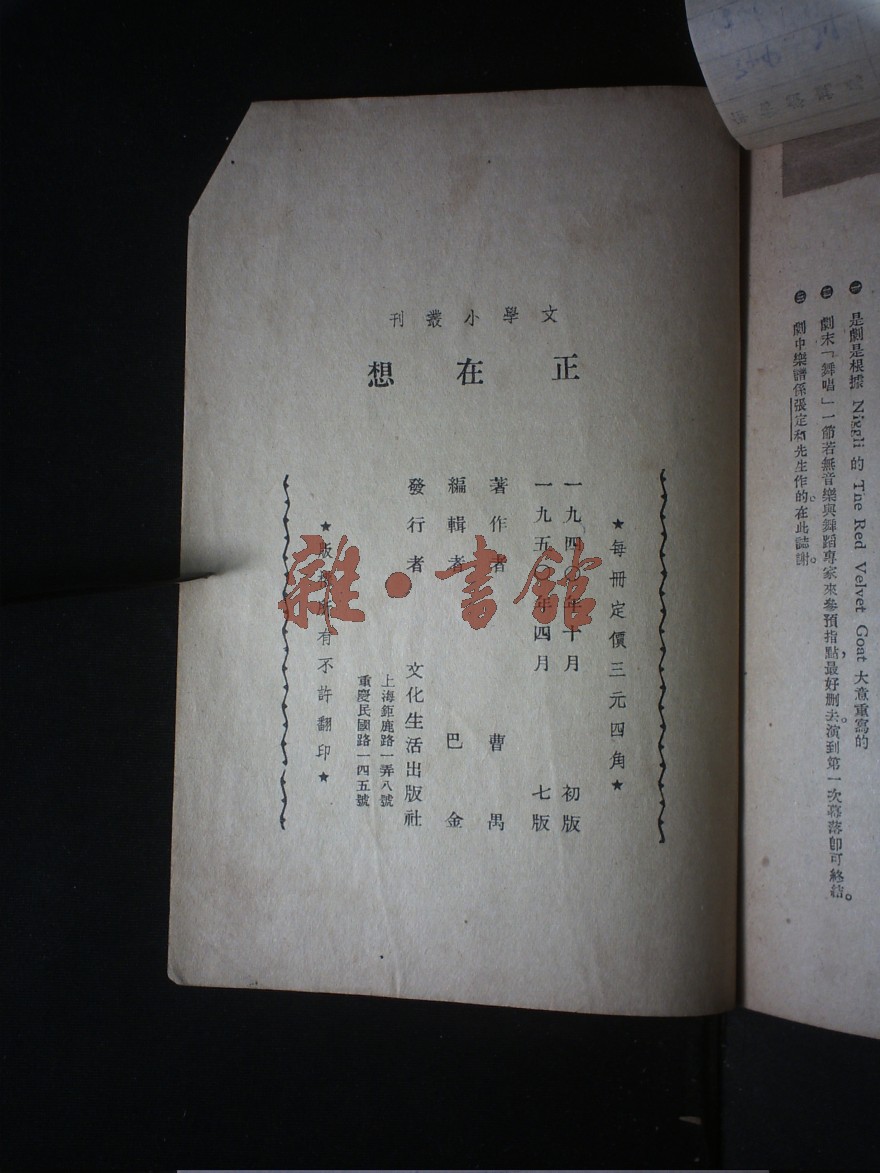 文學小叢刊
正在想
★每冊定價三元四角★
一九四〇年十月 初版
一九五〇年四月 七版
著作者 曹禺
編輯者 巴金
發行者 文化生活出版社
上海鉅鹿路一弄八號
重慶民國路一四五號
★版權所有不許翻印★
雜·書館
是劇是根據 Niggli 的 The Red Velvet Goat 大意重寫的
劇末「舞唱」一節若無音樂與舞蹈專家來參預指點,最好刪去。演到第一次幕落即可終結。
劇中樂譜係張定和先生作的。在此誌謝。